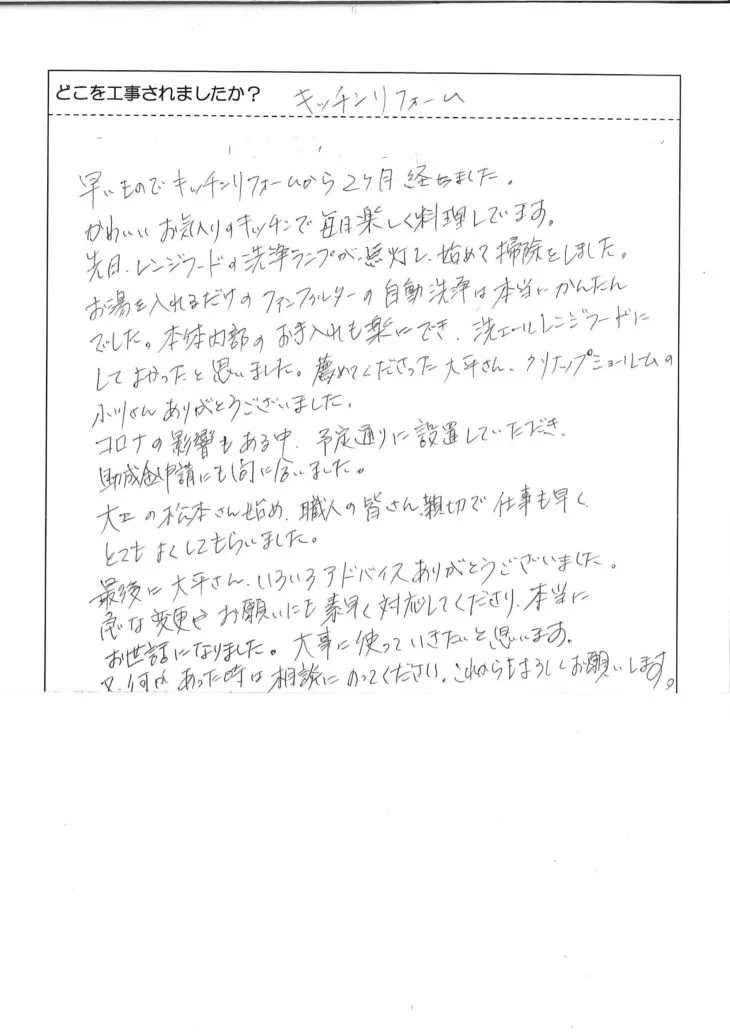 どこを工事されましたか？ キッチンリフォーム
早いものでキッチンリフォームから2ヶ月経ちました。
かわいいお気入りのキッチンで毎日楽しく料理しています。
先日、レンジフードの洗浄ランプが点灯し、始めて掃除をしました。
お湯を入れるだけのファンフィルターの自動洗浄は本当にかんたん
でした。本体内部のお手入れも楽にでき、洗エールレンジフードに
してよかったと思いました。薦めてくださった大平さん、クリナップショールームの
小川さんありがとうございました。
コロナの影響もある中、予定通りに設置していただき、
助成金申請にも間に合いました。
大工の松本さん始め、職人の皆さん親切で仕事も早く
とてもよくしてもらいました。
最後に大平さん、いろいろアドバイスありがとうございました。
急な変更やお願いにも素早く対応してくださり、本当に
お世話になりました。大事に使っていきたいと思います。
又、何かあった時は相談にのってください。これからもよろしくお願いします。